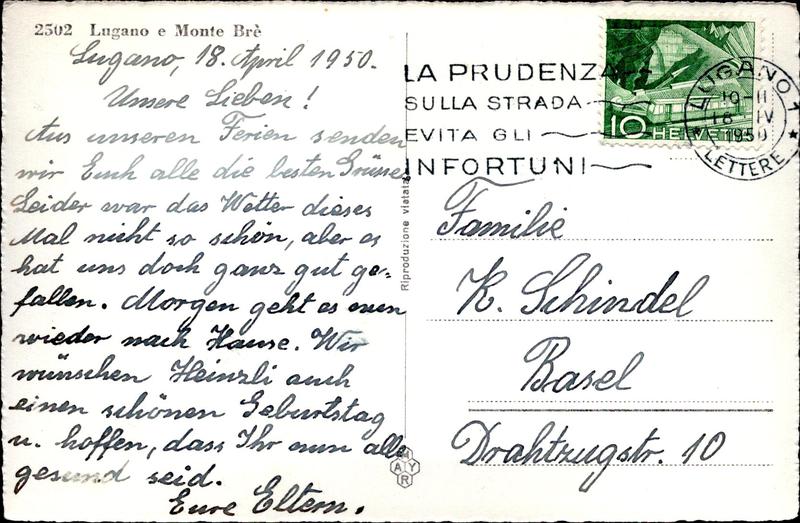 2502 Lugano e Monte Brè
Lugano, 18. April 1950.
Unsere Lieben!
Aus unseren Ferien senden
wir Euch alle die besten Grüsse
Leider war das Wetter dieses
Mal nicht so schön, aber es
hat uns doch ganz gut ge-
fallen. Morgen geht es nun
wieder nach Hause. Wir
wünschen Heinzli auch
einen schönen Geburtstag
u. hoffen, dass Ihr nun alle
gesund seid.
Eure Eltern.
Riproduzione vietata
MAYR
LA PRUDENZA
SULLA STRADA
EVITA GLI
INFORTUNI
10 HELVETIA
LUGANO 1
10-11
18 IV
1950
LETTERE
Familie
K. Schindel
Basel
Drahtzugstr. 10